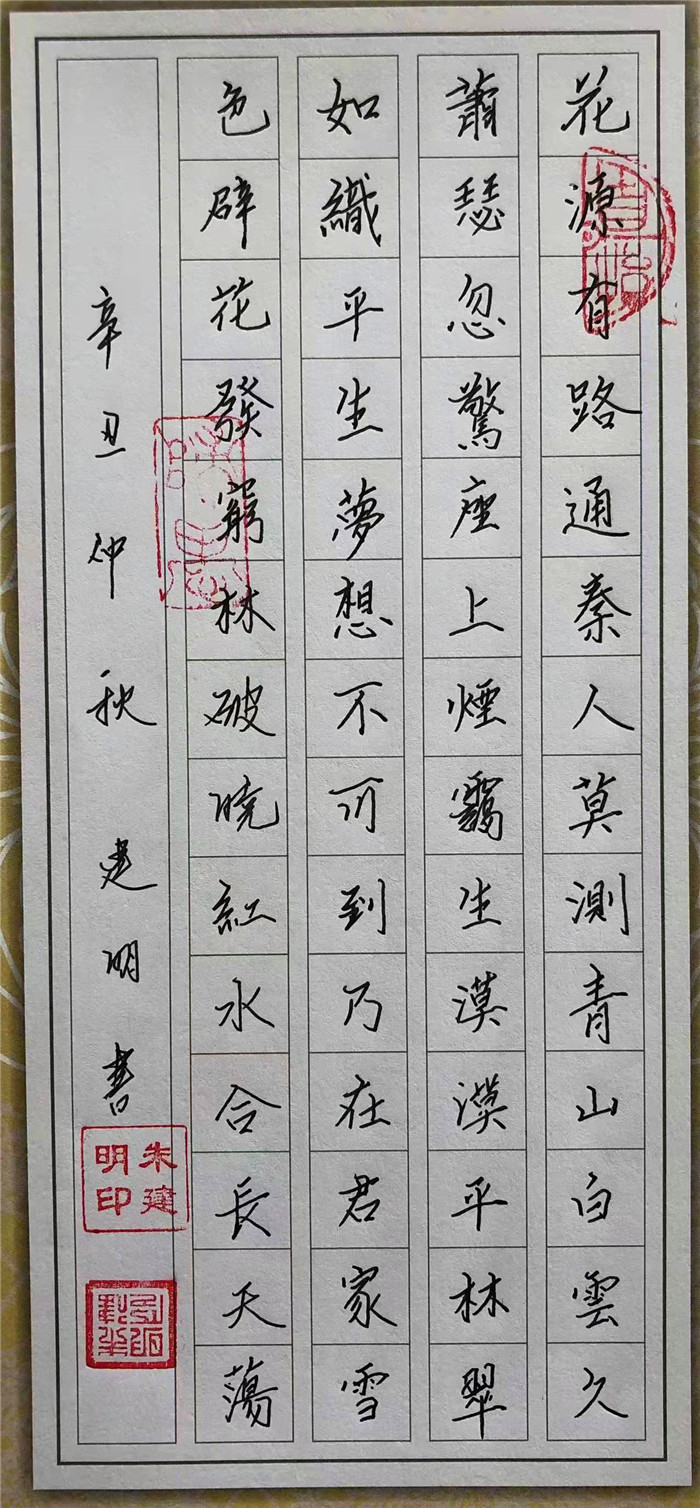 花源有路通秦人莫測青山白雲久
蕭瑟忽驚座上煙靄生漠漠平林翠
如織平生夢想不可到乃在君家雪
色壁花發窮林破曉紅水合長天蕩
辛丑仲秋 建明書
朱建明印